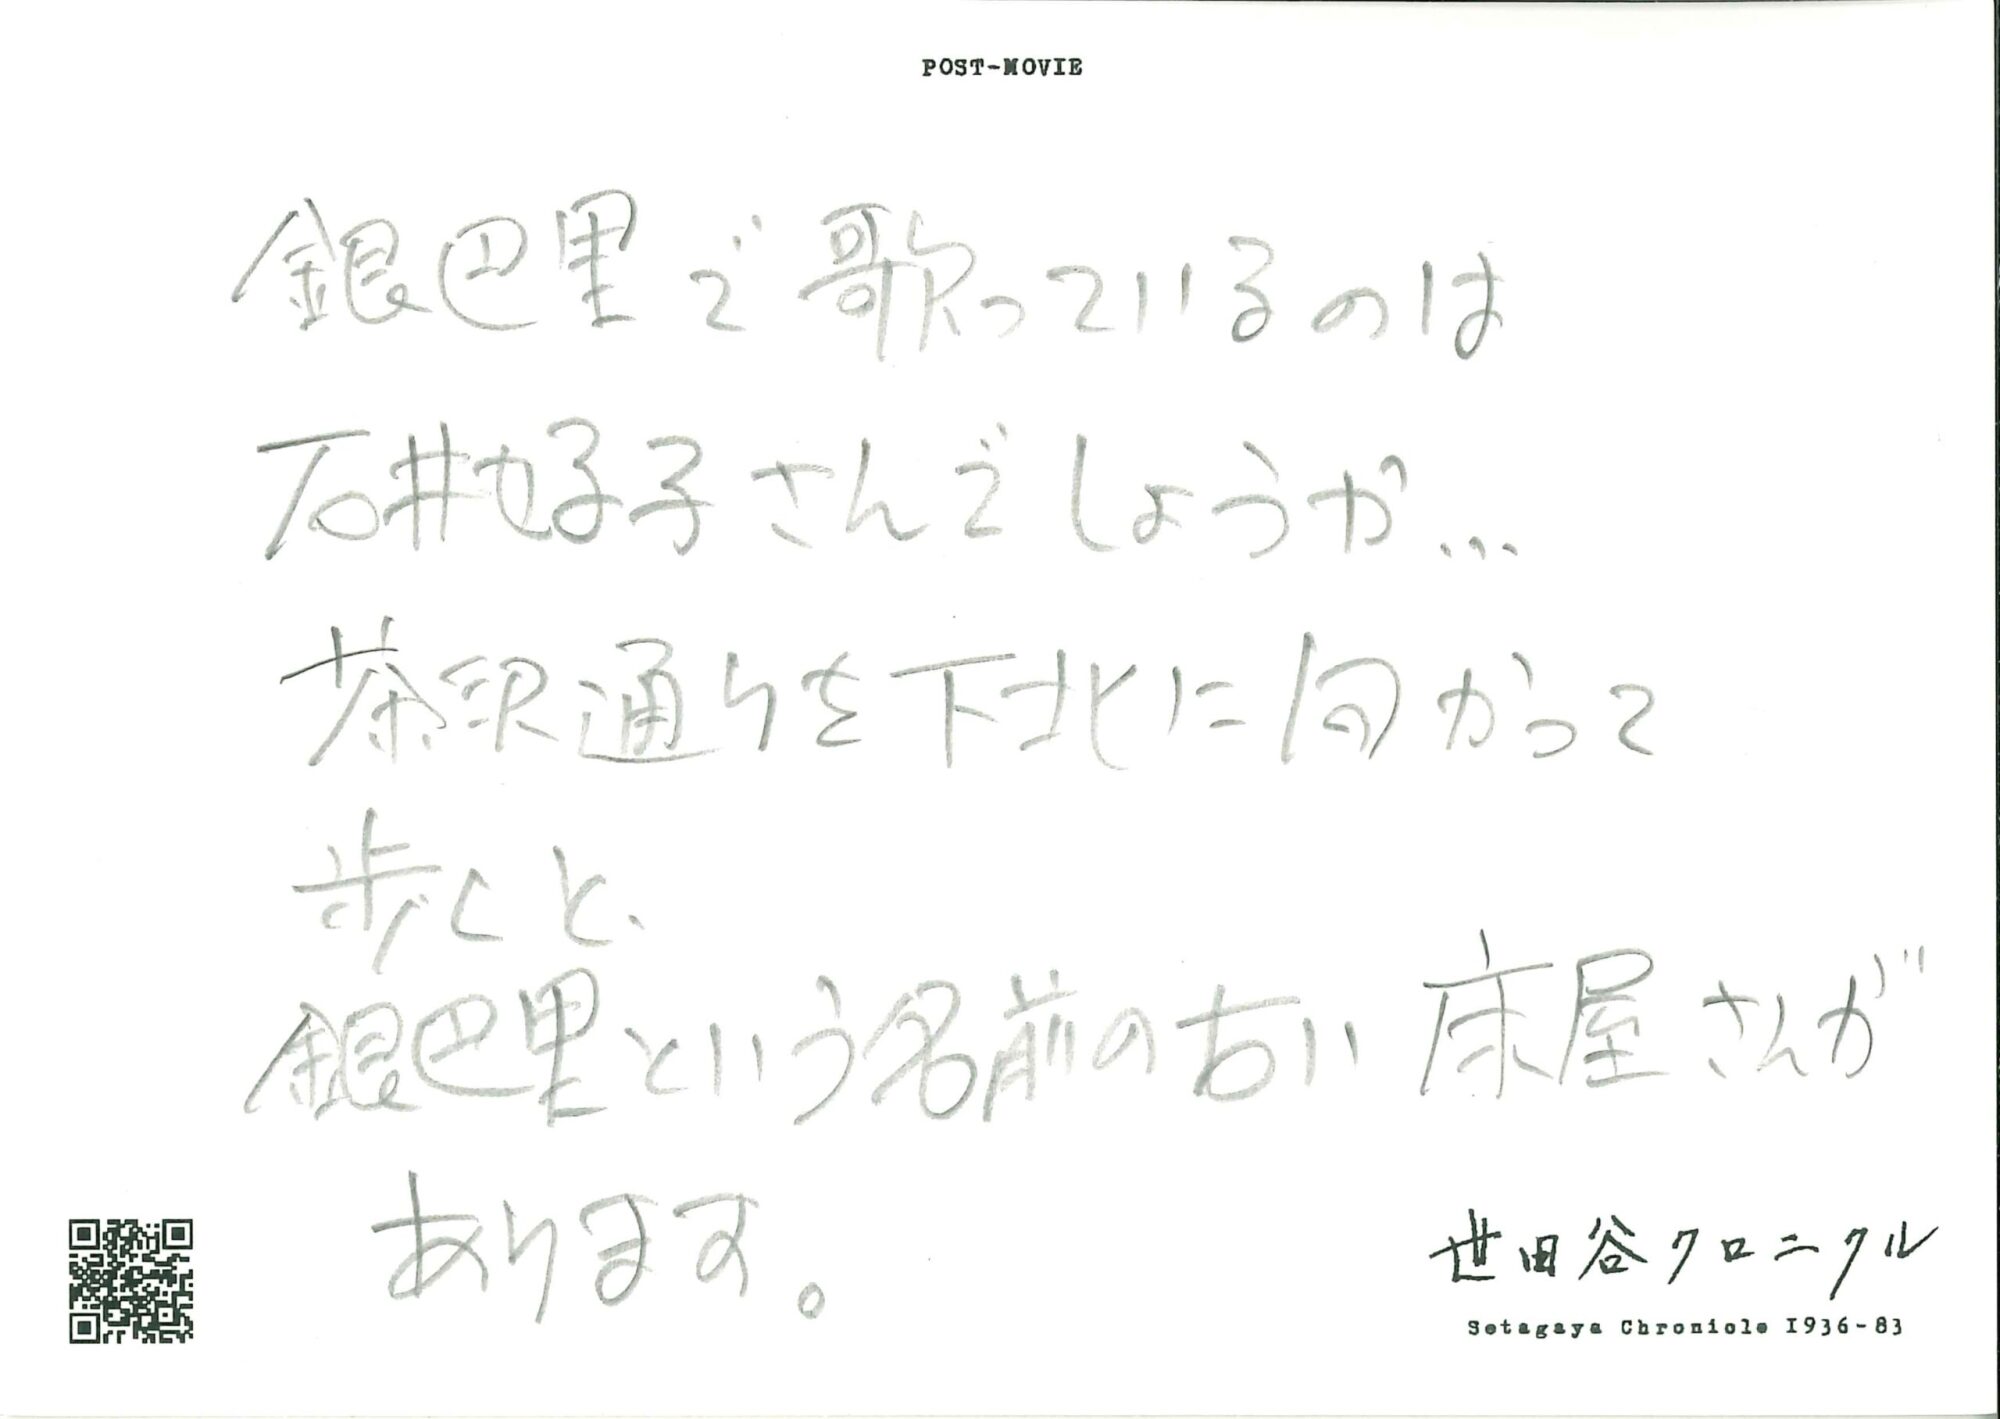 POST-MOVIE
銀巴里で歌っているのは
石井好子さんでしょうか…
茶沢通りを下北に向かって
歩くと、
銀巴里という名前の古い床屋さんが
あります。
世田谷クロニクル
Setagaya Chronicle 1936-83